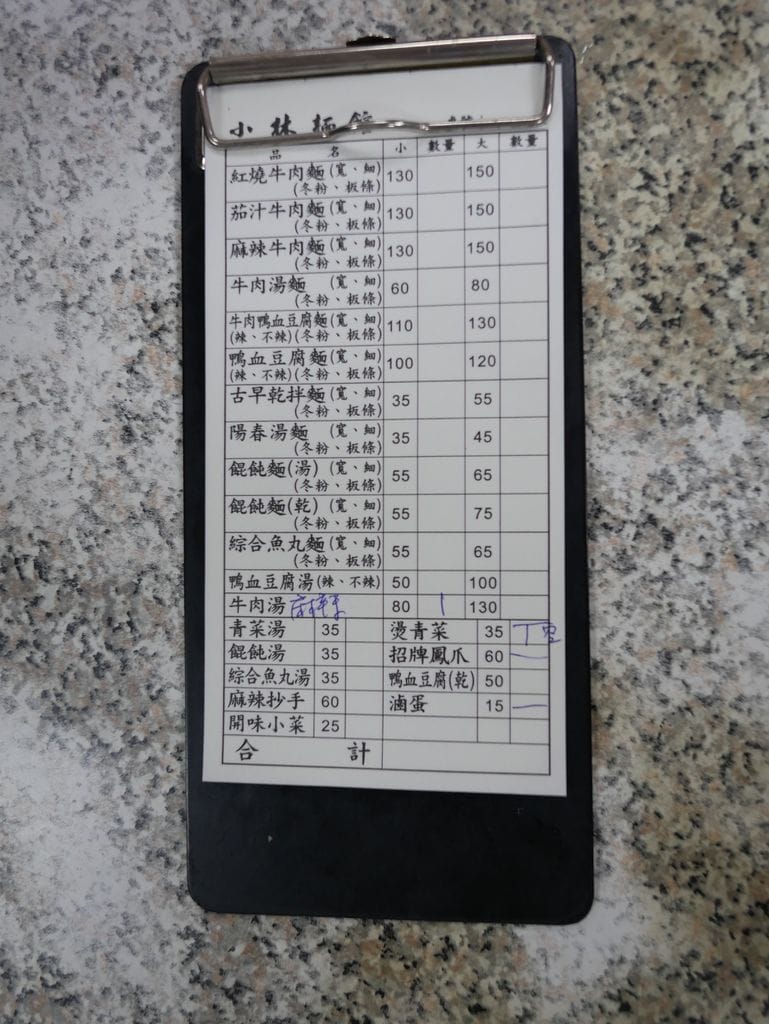 小林麵館
品名 小 數量 大 數量
紅燒牛肉麵(寬、細) 130 150
(冬粉、板條)
茄汁牛肉麵(寬、細) 130 150
(冬粉、板條)
麻辣牛肉麵(寬、細) 130 150
(冬粉、板條)
牛肉湯麵 (寬、細) 60 80
(冬粉、板條)
牛肉鴨血豆腐麵(寬、細) 110 130
(辣、不辣)(冬粉、板條)
鴨血豆腐麵(寬、細) 100 120
(辣、不辣)(冬粉、板條)
古早乾拌麵(寬、細) 35 55
(冬粉、板條)
陽春湯麵 (寬、細) 35 45
(冬粉、板條)
餛飩麵(湯) (寬、細) 55 65
(冬粉、板條)
餛飩麵(乾) (寬、細) 55 75
(冬粉、板條)
綜合魚丸麵(寬、細) 55 65
(冬粉、板條)
鴨血豆腐湯(辣、不辣) 50 100
牛肉湯 80 1 130
青菜湯 35 燙青菜 35
餛飩湯 35 招牌鳳爪 60 一
綜合魚丸湯 35 鴨血豆腐(乾) 50
麻辣抄手 60 滷蛋 15 一
開味小菜 25
合計